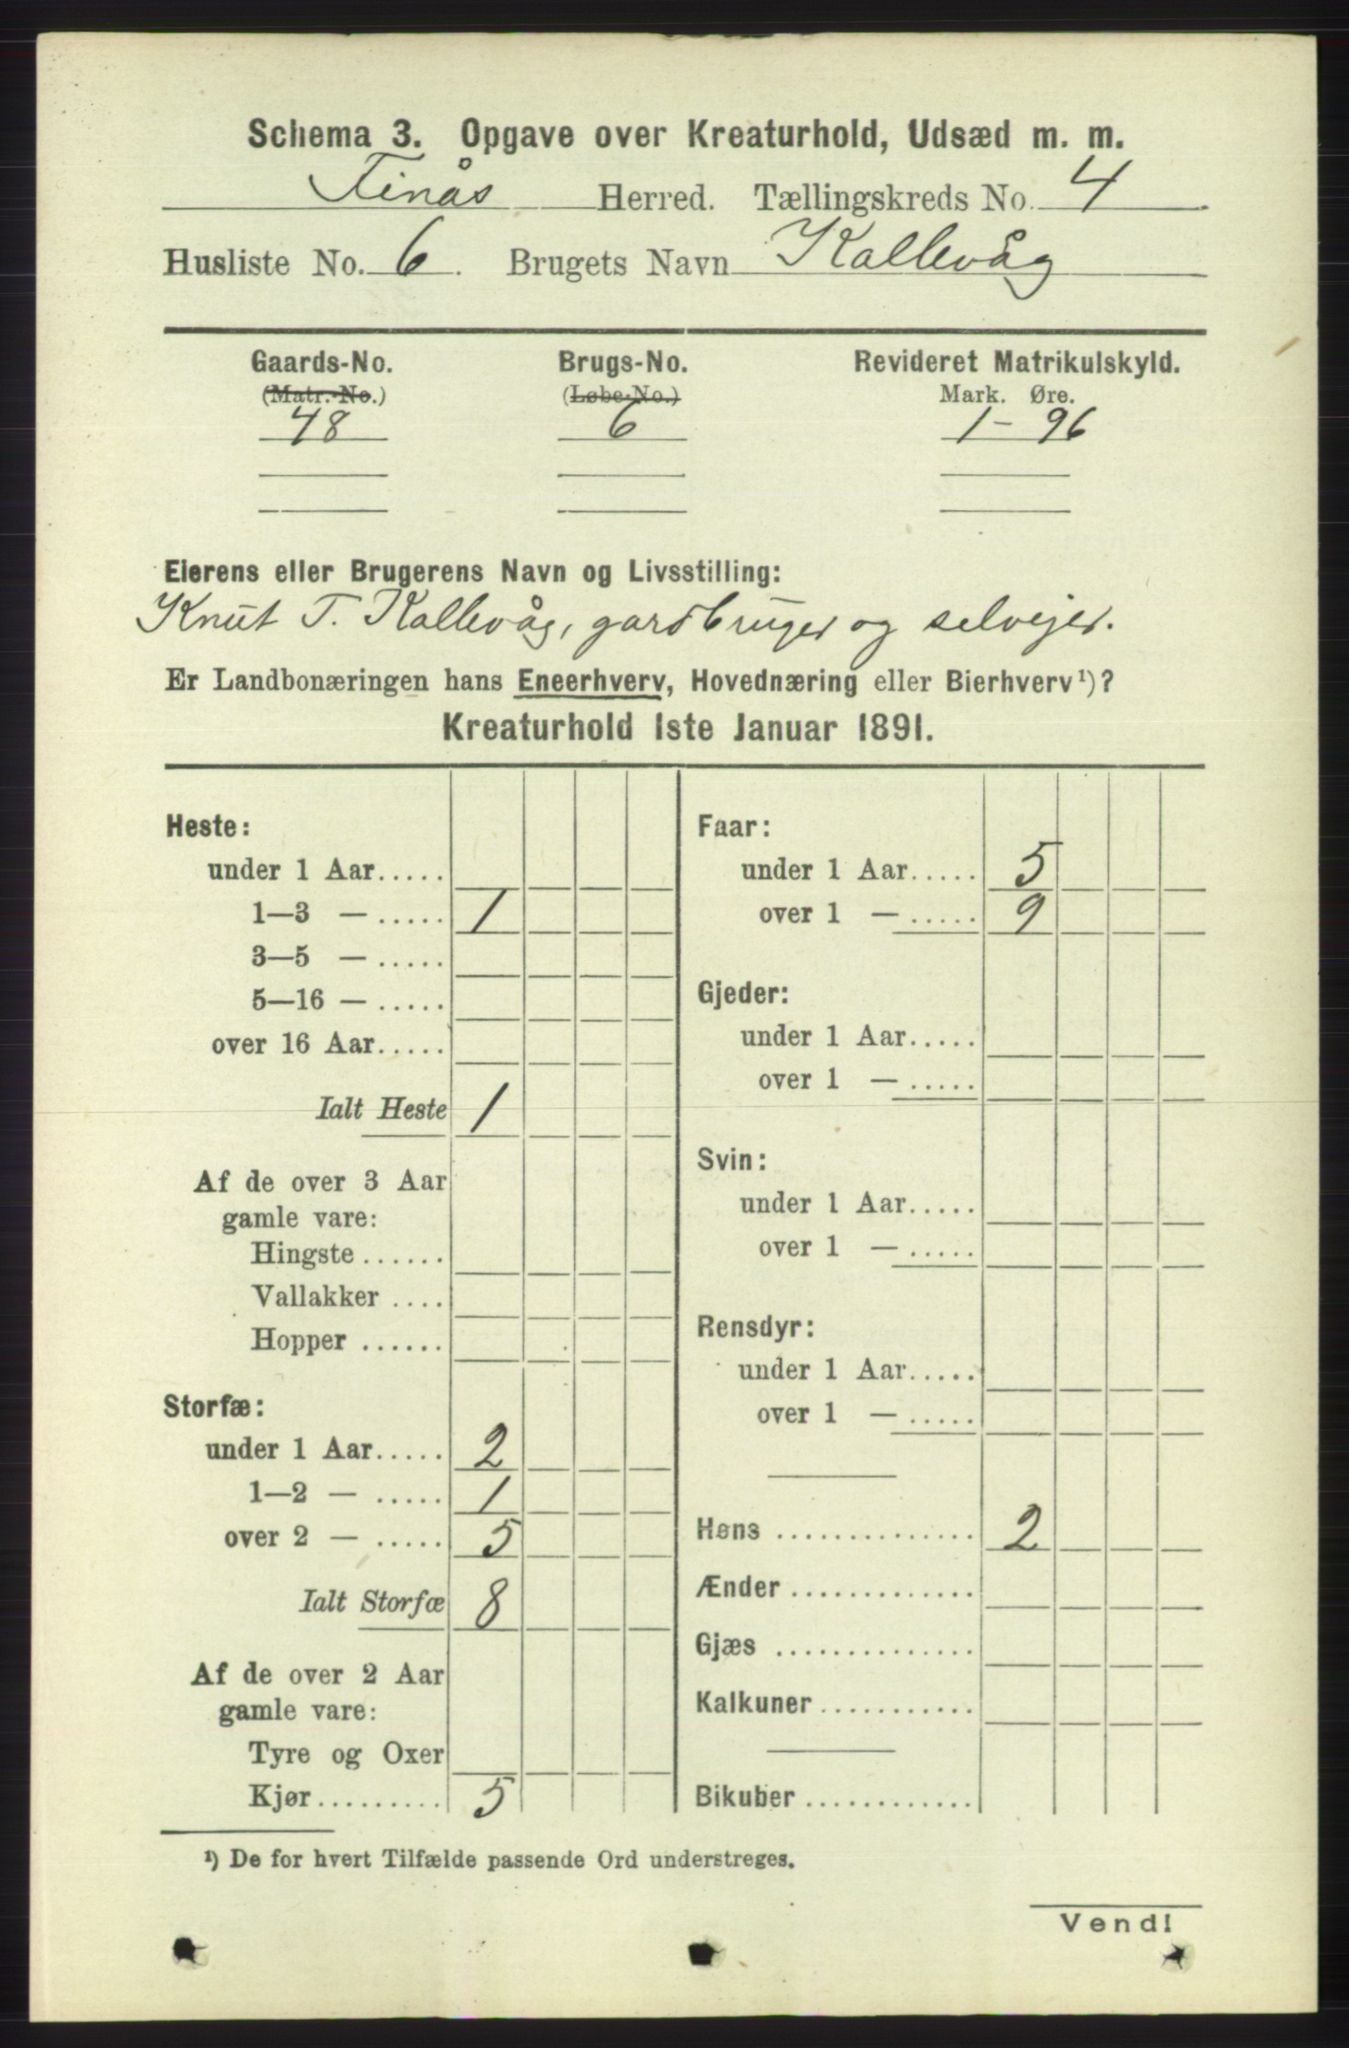 Schema 3. Opgave over Kreaturhold, Udsæd m. m.
Finås Herred. Tællingskreds No. 4
Husliste No. 6. Brugets Navn Kallevåg
Gaards-No. Brugs-No. Revideret Matrikulskyld.
(Matr.-No.) (Løbe-No.) Mark. Øre.
48 6 1-96
Eierens eller Brugerens Navn og Livsstilling:
Knut T. Kallevåg, gardbruger og selvejer.
Er Landbonæringen hans Eneerhverv, Hovednæring eller Bierhverv¹)?
Kreaturhold 1ste Januar 1891.
Heste:
under 1 Aar.....
1—3 — ..... 1
3—5 — .....
5—16 — .....
over 16 Aar.....
Ialt Heste 1
Af de over 3 Aar
gamle vare:
Hingste......
Vallakker ....
Hopper ......
Storfæ:
under 1 Aar..... 2
1—2 — ..... 1
over 2 — ..... 5
Ialt Storfæ 8
Af de over 2 Aar
gamle vare:
Tyre og Oxer
Kjør......... 5
Faar:
under 1 Aar..... 5
over 1 — ..... 9
Gjeder:
under 1 Aar.....
over 1 — .....
Svin:
under 1 Aar.....
over 1 — .....
Rensdyr:
under 1 Aar.....
over 1 — .....
Høns .............. 2
Ænder .............
Gjæs ..............
Kalkuner...........
Bikuber ............
¹) De for hvert Tilfælde passende Ord understreges.
Vend!